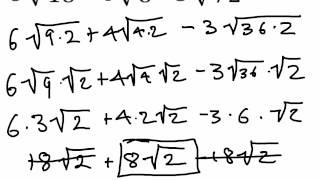 6√9.2 + 4√4.2 - 3√36.2
6√9 . √2 + 4√4 √2 - 3√36 . √2
6.3√2 + 4.2√2 - 3.6.√2
+8√2 + 8√2 - +8√2